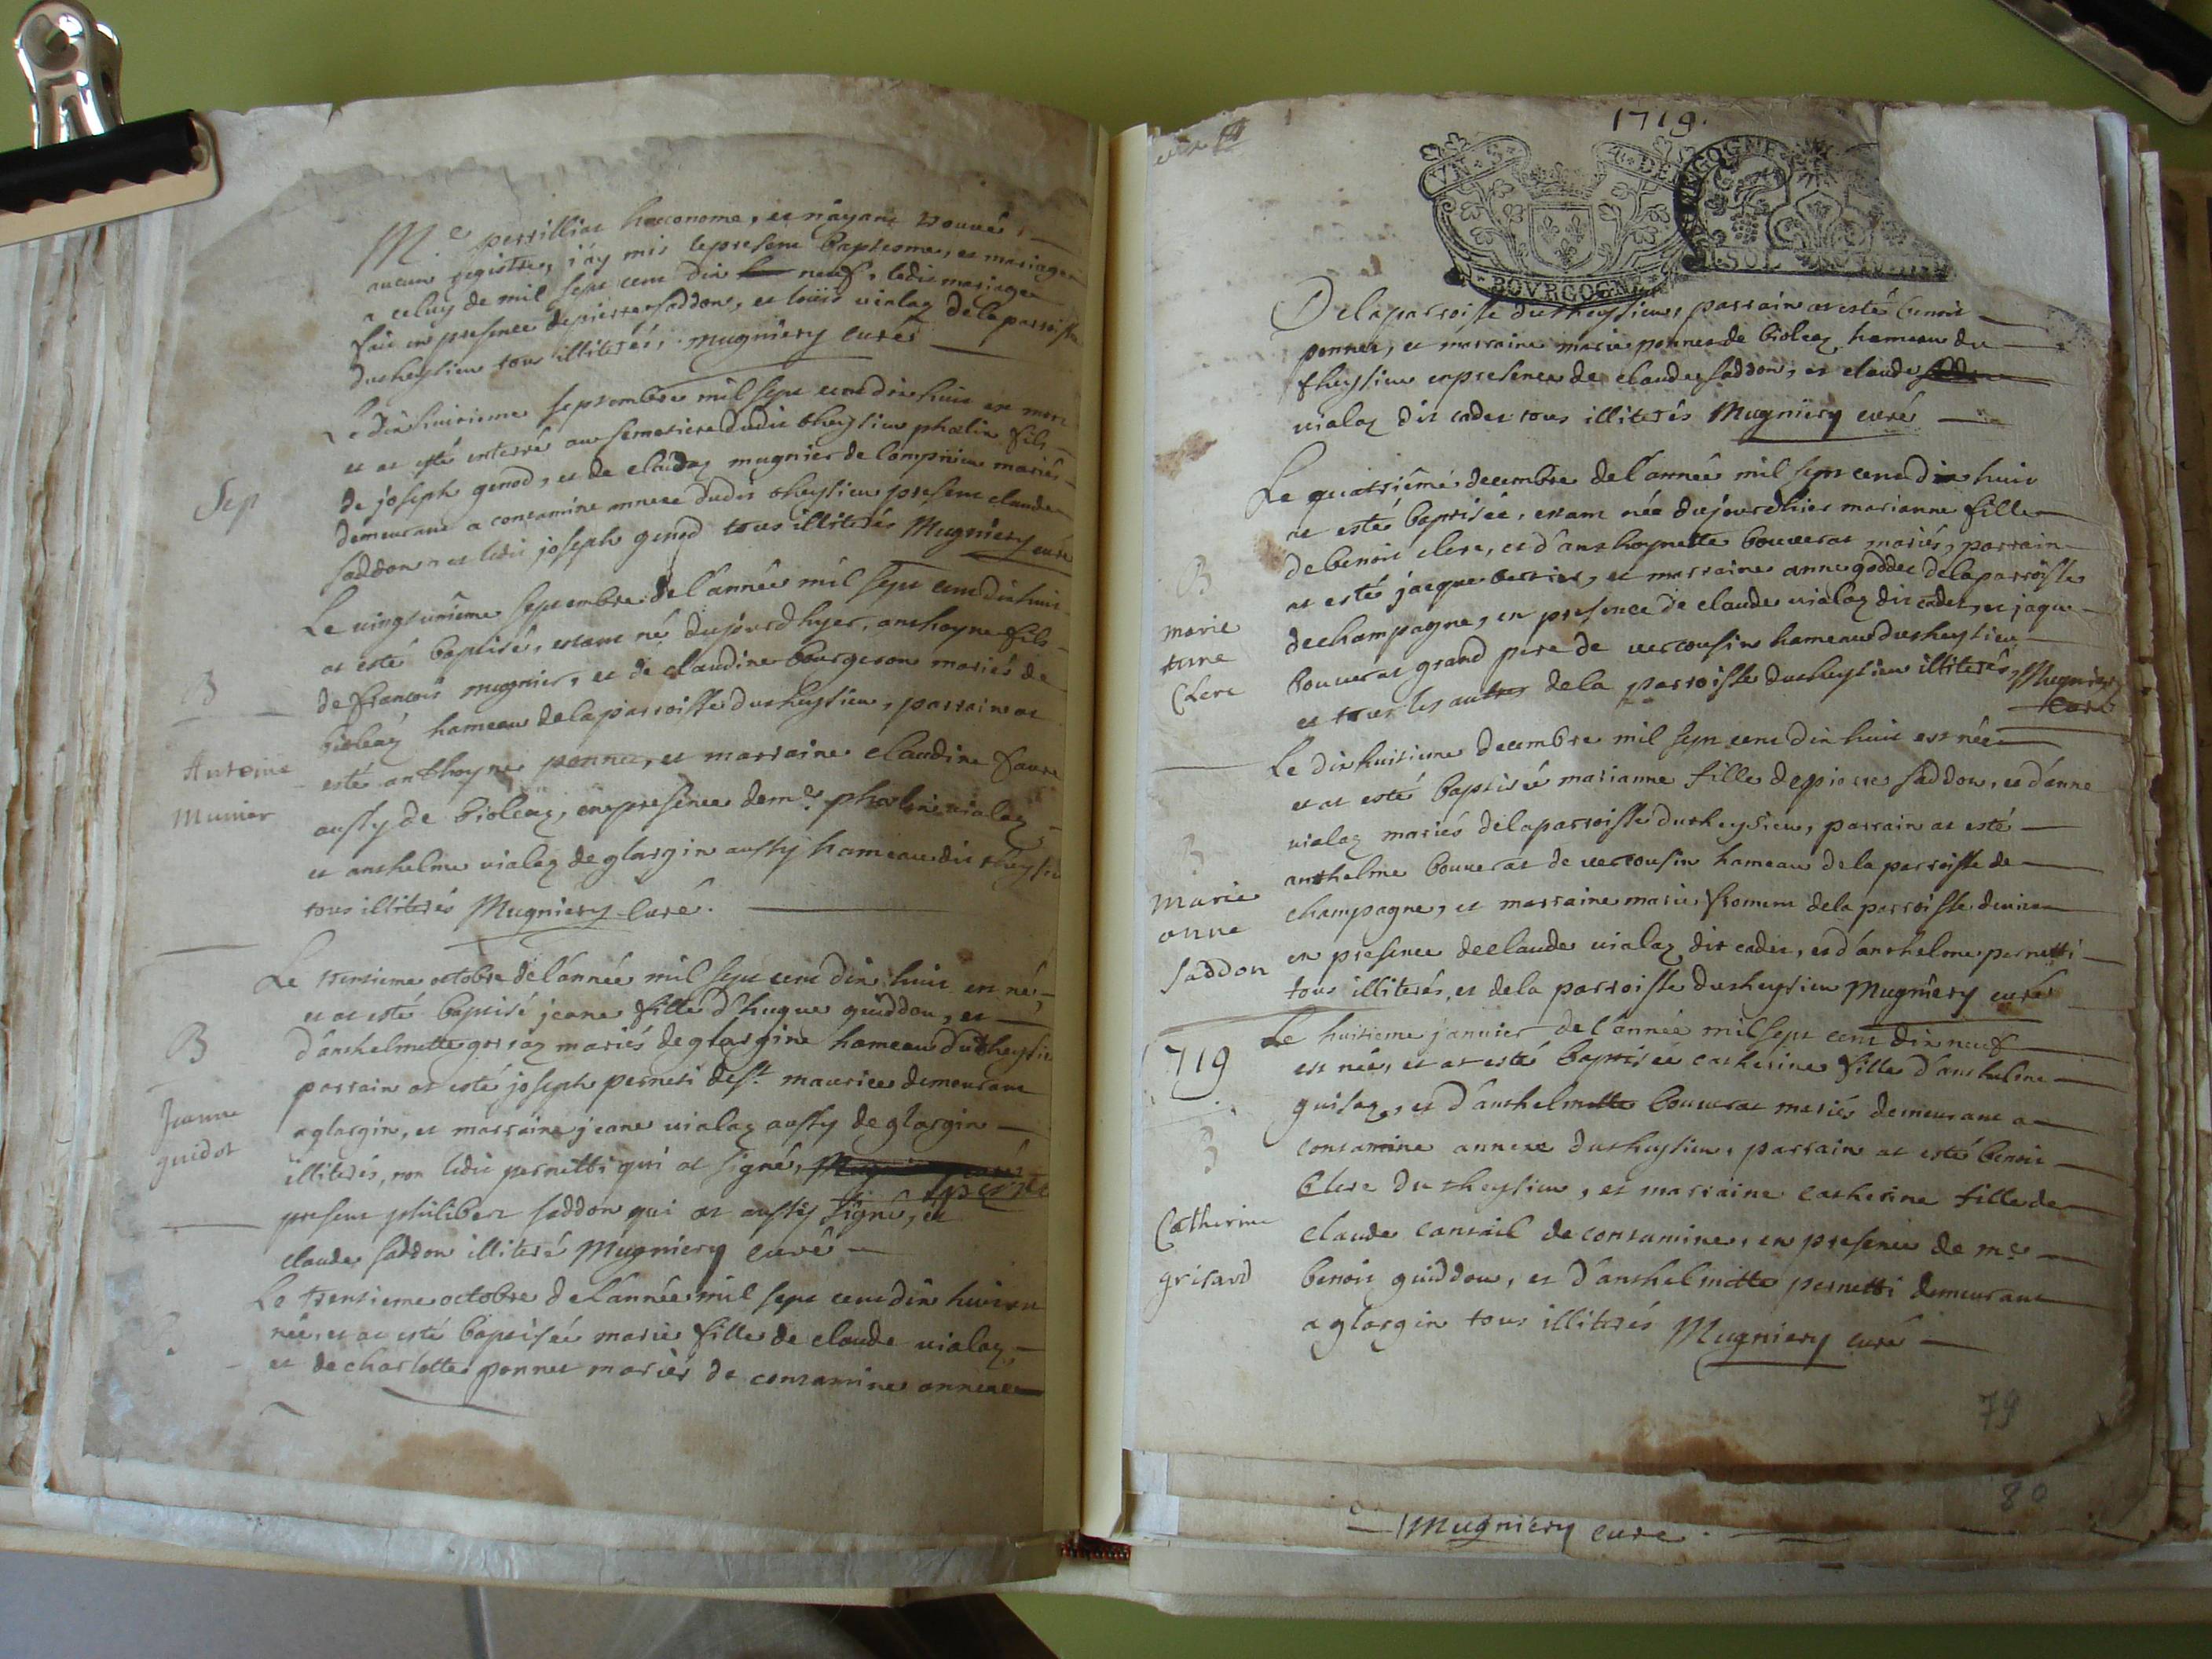 M.e perrilliat heconome, et n'ayant trouvé
aucun registre, j'ay mis le present baptesme, et mariage
a celuy de mil sept cent dix neuf, ledit mariage
fait en presence de pierre saddon, et louis vialaz de la parroisse
dutheysieu tous illiterés, mugniery curé
Le dix huitieme septembre mil sept cent dix huit est mort
et at esté enterré au semetiere dudit theysieu philin fils
de joseph genod, et de claudaz mugnier de lompnieu mariés
demeurant a contamine annexe dudit theysieu present claude
saddon, et ledit joseph genod tous illiterés Mugniery curé
Sep
Le vingt unième septembre de l'année mil sept cent dix huit
at esté baptisé, estant né dujourdhyer, anthoyne fils
de francois mugnier, et de claudine bourgeron mariés de
bioleaz hameau de la parroisse dutheysieu, parrain at
esté anthoyne ponnet, et marraine claudine favre
aussy de bioleaz, en presence de m.e vialaz
et anthelme vialaz de glargin aussy hameau du theysieu
tous illiterés Mugniery Curé.
B
Antoine
Munier
Le trensieme octobre de l'année mil sept cent dix huit est né
et at esté baptisé jeane fille d'hugue guiddon, et
d'anthelmette gorraz mariés de glargine hameau dutheysieu
parrain at esté joseph perneti de st. maurice demeurant
a glargin, et marraine jeane vialaz aussy de glargin
illiterés, non ledit pernetti qui at signé,
present philibert saddon qui at aussy signé, et
claude saddon illiteré Mugniery curé
B
Jeanne
guidot
Le trensieme octobre de l'année mil sept cent dix huit est
née, et at esté baptisée marie fille de claude vialaz,
et de charlotte ponnet mariés de contamine annexe
1719.
VN S. 4. DE
BOVRGOGNE
BOVRGOGNE
SOL
De la parroisse dutheysieu, parrain at esté benoit
ponnet, et marraine marie ponnet de bioleaz hameau du
theysieu en presence de claude saddon, et claude
vialaz dit cadet tous illiterés Mugniery curé
Le quatrième decembre de l'année mil sept cent dix huit
at estée baptisée, estant née dujourdhier marianne fille
de benoit clerc, et d'anthoynette bouverat mariés, parrain
at esté jacque bertier, et marraine anne goddet de la parroisse
de champagne, en presence de claude vialaz dit cadet, et jaque
bouverat grand pere de vercousin hameau dutheysieu
et tous les autres de la parroisse dutheysieu illiterés, Mugniery
curé
B
marie
anne
Clerc
Le dix huitieme decembre mil sept cent dix huit est née
et at esté baptisée marianne fille de pierre saddon, et d'anne
vialaz mariés de la parroisse dutheysieu, parrain at esté
anthelme bouverat de vercousin hameau de la parroisse de
champagne, et marraine marie froment de la parroisse de
en presence de claude vialaz dit cadet, et d'anthelme pernetti
tous illiterés, et de la parroisse dutheysieu Mugniery curé
B
Marie
anne
Saddon
1719
Le huitieme janvier de l'année mil sept cent dix neuf
est née, et at esté baptisée catherine fille d'anthelme
guisaz, et d'anthelmette bouverat mariés demeurant a
contamine annexe dutheysieu, parrain at esté benoit
Clerc dutheysieu, et marraine catherine fille de
claude de contamine, en presence de m.e
benoit guiddon, et d'anthelmette pernetti demeurant
a glargin tous illiterés Mugniery curé
B
Catherine
grisard
79
80
Mugniery cure.